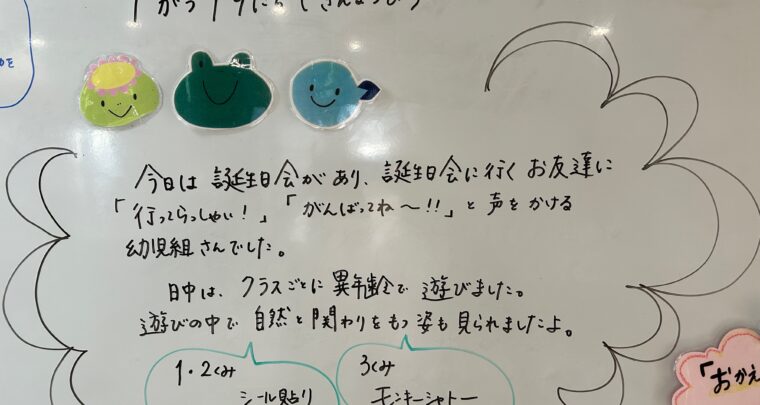 今日は誕生日会があり、誕生日会に行くお友達に
「行ってらっしゃい！」「がんばってね〜!!」と声をかける
幼児組さんでした。
日中は、クラスごとに異年齢で遊びました。
遊びの中で自然と関わりをもつ姿も見られましたよ。
1・2くみ
シール貼り
3くみ
モンキーシャトー
「おかえ